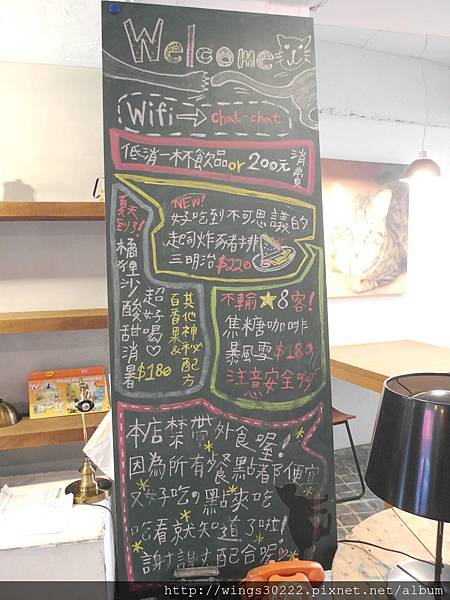 Welcome
Wifi→chat-chat
低消一杯飲品or 200元消費
NEW!
好吃到不可思議的
起司炸豬排
三明治 $220
夏天到了!
橘狸沙
酸甜消暑
超好喝♡
$180
百香果&
其他神祕配方
不輸★8客!
焦糖咖啡
暴風雪 $180
注意安全啊
本店禁帶外食喔!
因為所有餐點都便宜
又好吃,點來吃
吃看就知道了啦!
謝謝配合喔♡
http://wings30222.pixnet.net/album